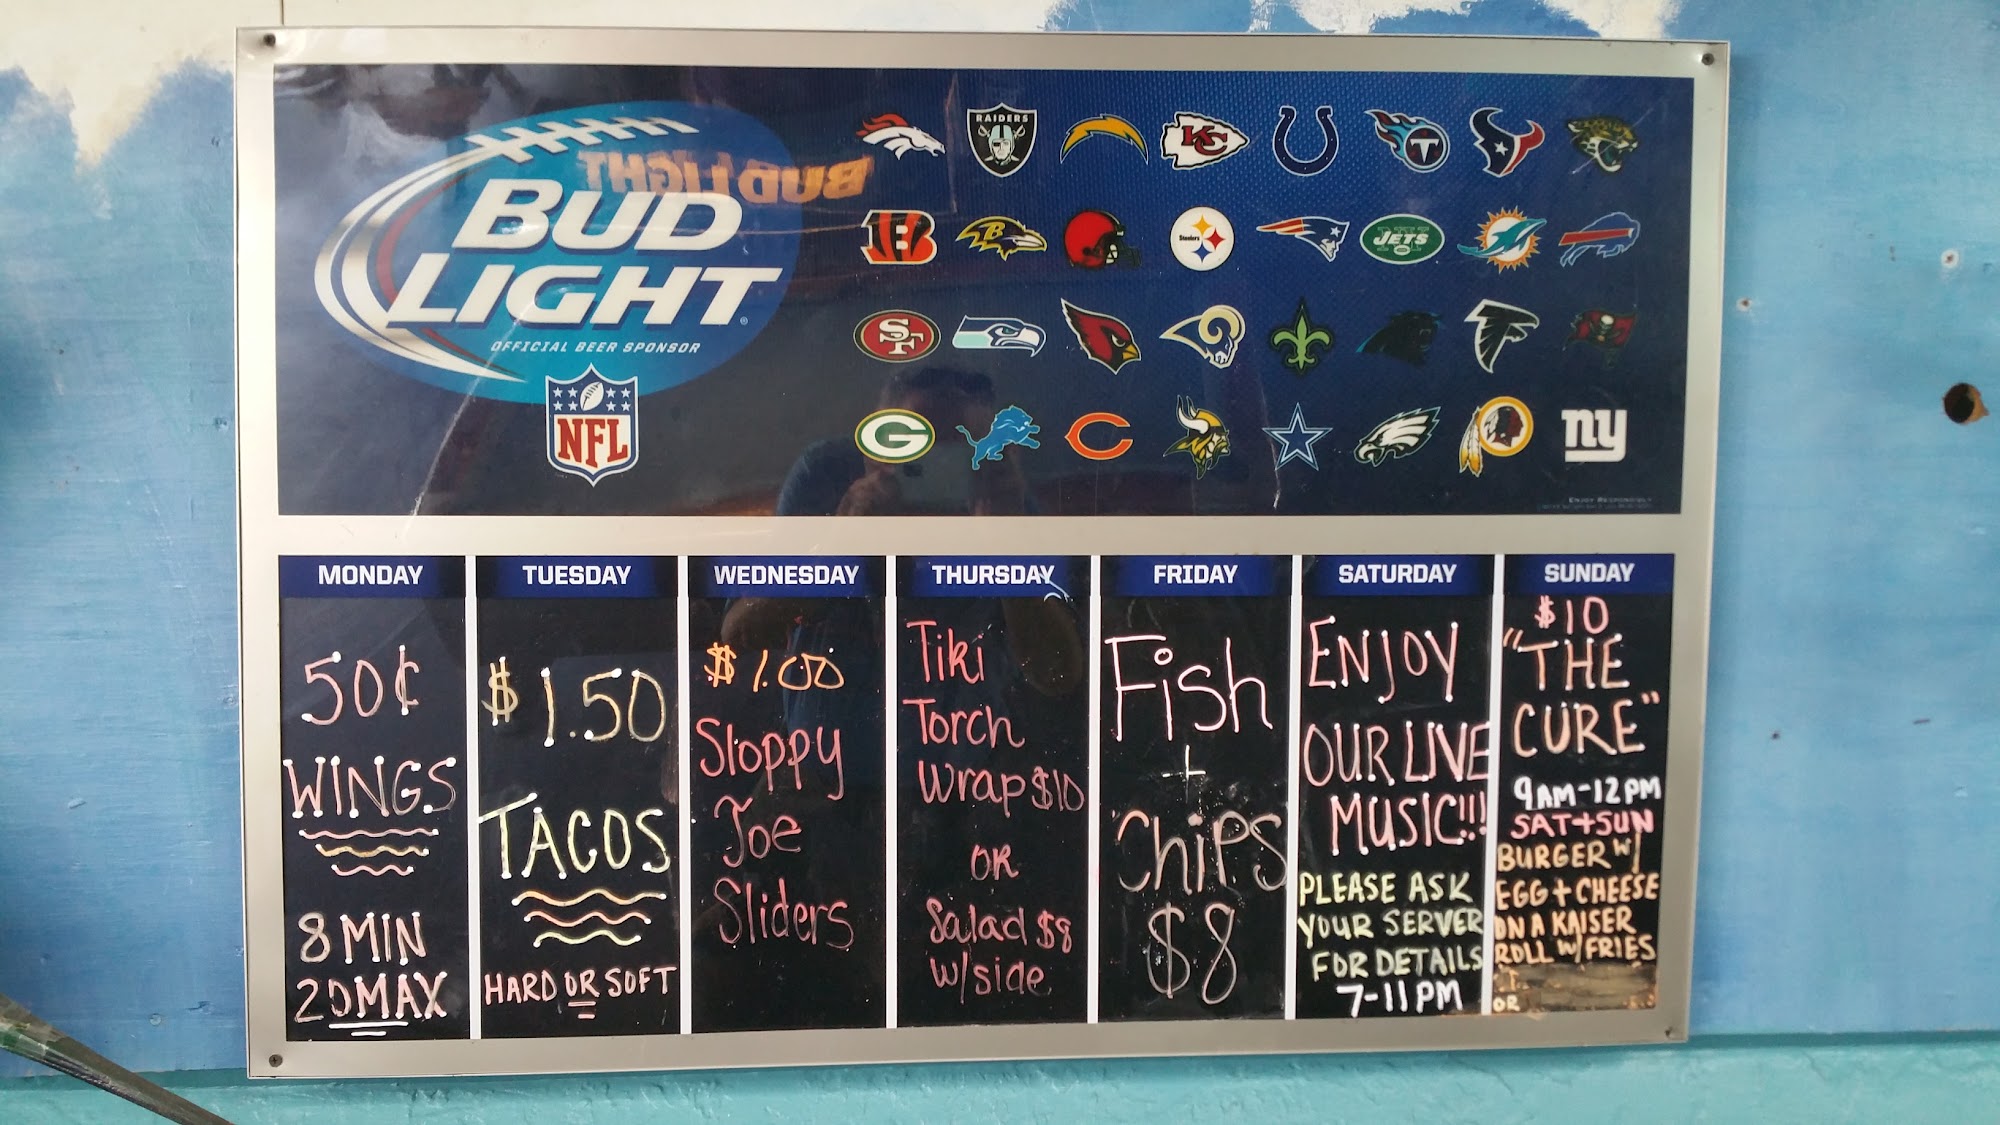 BUD
LIGHT
BUD LIGHT
OFFICIAL BEER SPONSOR
NFL
RAIDERS
KC
T
B
Steelers
JETS
SF
G
C
ny
ENJOY RESPONSIBLY
MONDAY
50¢
WINGS
8 MIN
20 MAX
TUESDAY
$1.50
TACOS
HARD OR SOFT
WEDNESDAY
$1.00
Sloppy
Joe
Sliders
THURSDAY
Tiki
Torch
Wrap $10
OR
Salad $8
w/side
FRIDAY
Fish
+
Chips
$8
SATURDAY
ENJOY
OUR LIVE
MUSIC!!!
PLEASE ASK
YOUR SERVER
FOR DETAILS
7-11PM
SUNDAY
$10
"THE
CURE"
9AM-12PM
SAT+SUN
BURGER W/
EGG + CHEESE
ON A KAISER
ROLL W/ FRIES
OR